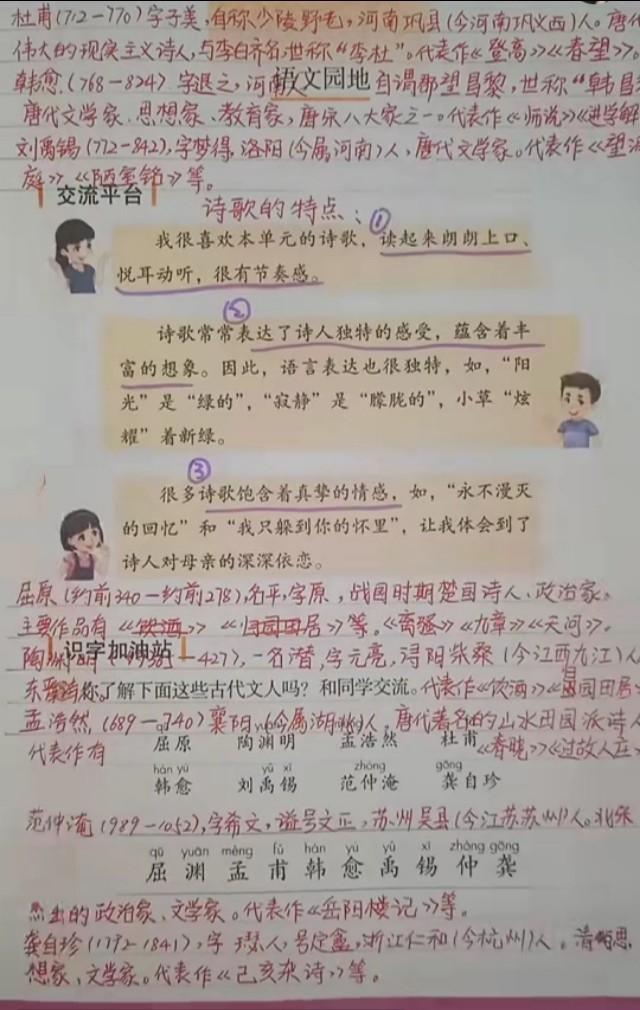 杜甫(712-770)字子美,自称少陵野老,河南巩县(今河南巩义西)人。唐代
伟大的现实主义诗人,与李白齐名,世称“李杜”。代表作《登高》《春望》。
韩愈(768-824)字退之,河南 自谓郡望昌黎,世称“韩昌
语文园地
唐代文学家、思想家、教育家,唐宋八大家之一。代表作《师说》《进学解
刘禹锡(772-842),字梦得,洛阳(今属河南)人,唐代文学家。代表作《望洞
庭》《陋室铭》等。
交流平台
诗歌的特点:
①
我很喜欢本单元的诗歌,读起来朗朗上口、
悦耳动听,很有节奏感。
②
诗歌常常表达了诗人独特的感受,蕴含着丰
富的想象。因此,语言表达也很独特,如,“阳
光”是“绿的”,“寂静”是“朦胧的”,小草“炫
耀”着新绿。
③
很多诗歌饱含着真挚的情感,如,“永不漫灭
的回忆”和“我只躲到你的怀里”,让我体会到了
诗人对母亲的深深依恋。
屈原(约前340-约前278),名平,字原,战国时期楚国诗人、政治家。
主要作品有《饮酒》《归园田居》等。《离骚》《九章》《天问》。
识字加油站
427),一名潜,字元亮,浔阳柴桑(今江西九江)人
你了解下面这些古代文人吗?和同学交流。代表作《饮酒》《归园田居》
孟浩然(689-740)襄阳(今属湖北)人,唐代著名的山水田园派诗人
代表作有 《春晓》《过故人庄》
屈原 陶渊明 孟浩然 杜甫
hán yù yǔ xī zhòng gōng
韩愈 刘禹锡 范仲淹 龚自珍
范仲淹(989-1052),字希文,谥号文正,苏州吴县(今江苏苏州)人。北宋
qū yuān mèng fǔ hán yù yǔ xī zhòng gōng
屈 渊 孟 甫 韩 愈 禹 锡 仲 龚
杰出的政治家、文学家。代表作《岳阳楼记》等。
龚自珍(1792-1841),字璱人,号定盦,浙江仁和(今杭州)人。清 思
想家、文学家。代表作《己亥杂诗》等。